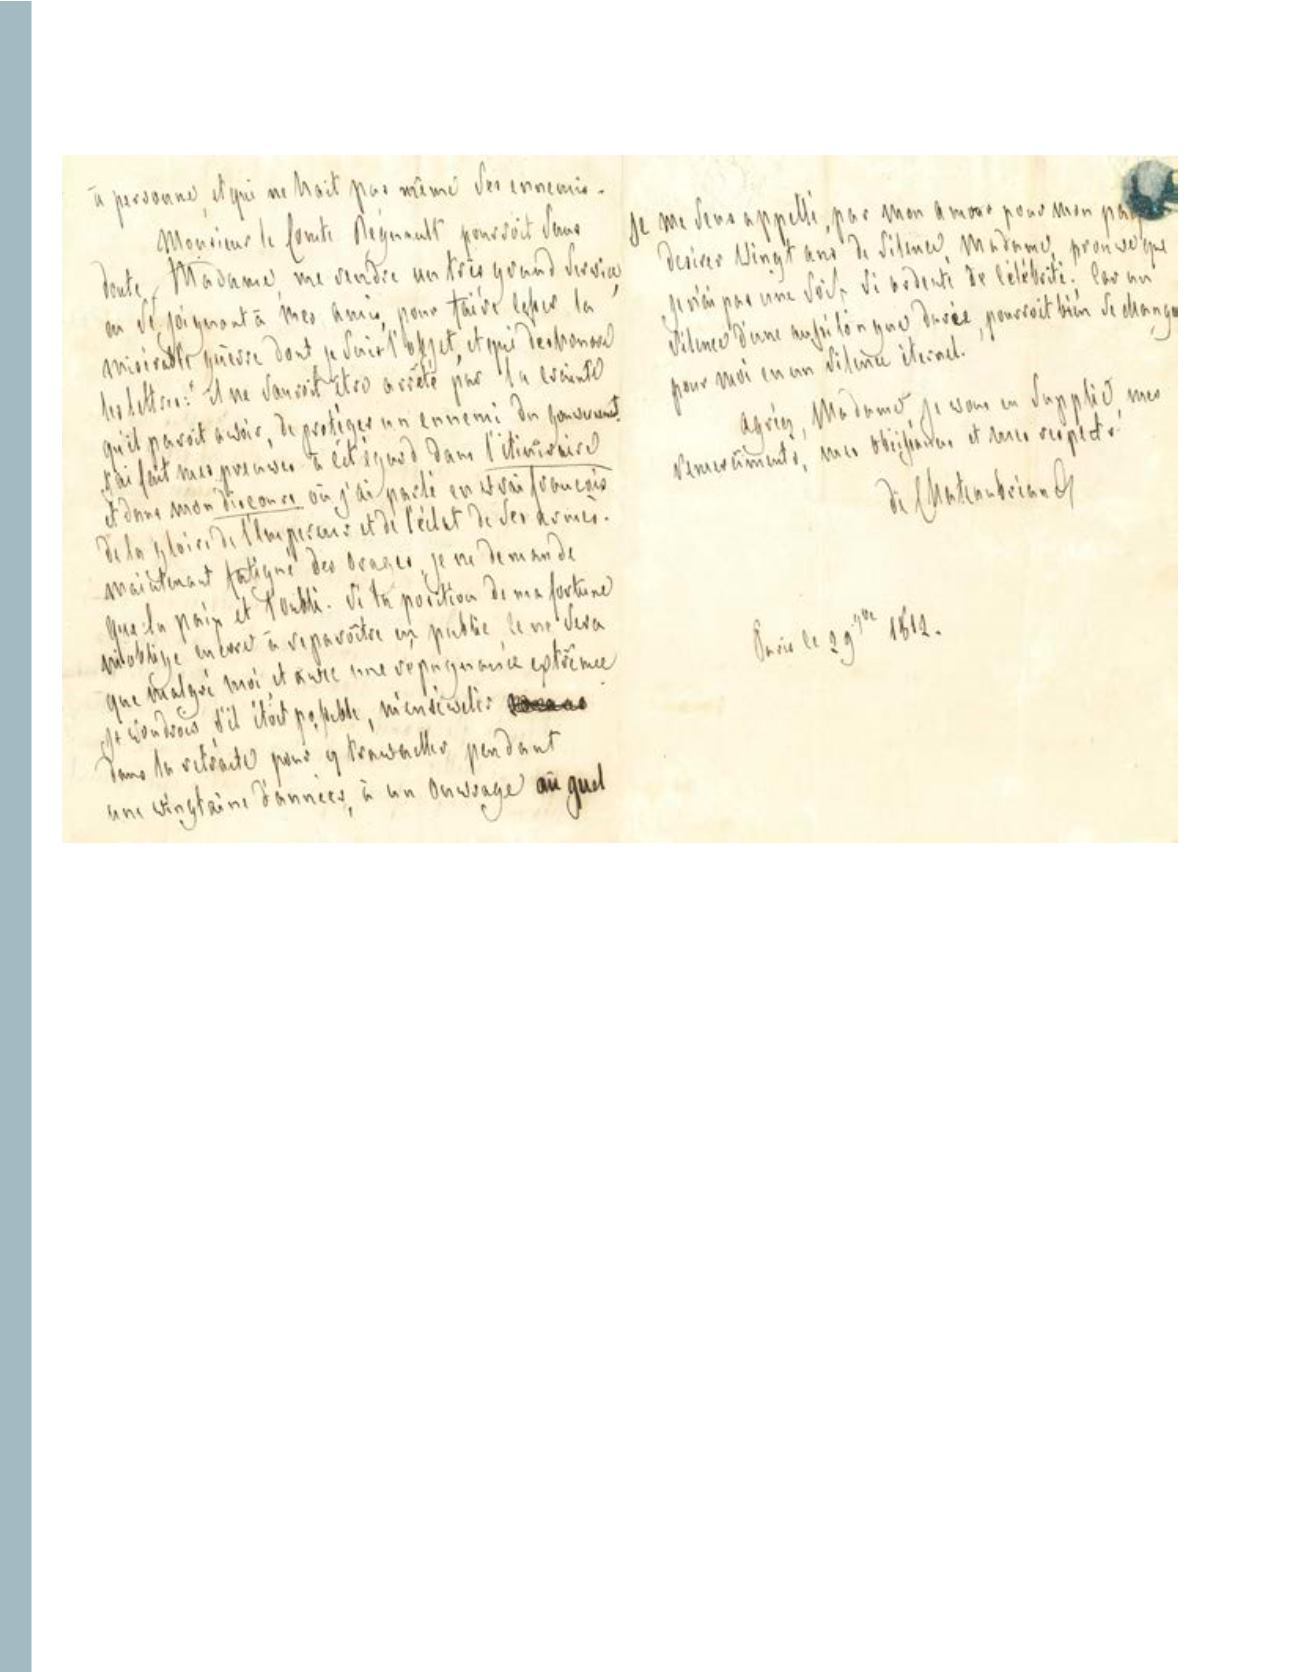 à personne, et qui ne hait pas même ses ennemis.
Monsieur le Comte Régnault pourroit sans
doute, Madame, me rendre un très grand service,
en se joignant à mes amis, pour faire cesser la
misérable guerre dont je suis l'objet, et qui deshonore
les lettres: il ne sauroit être arrêté par la crainte
qu'il paroit avoir, de protéger un ennemi du gouvernement.
J'ai fait mes preuves à cet égard dans l'itinéraire
et dans mon discours où j'ai parlé en vrai françois
de la gloire de l'Empereur et de l'éclat de ses armes.
maintenant fatigué des orages, je ne demande
que la paix et l'oubli. Si la position de ma fortune
m'oblige encore à reparoître en public, ce ne sera
que malgré moi et avec une répugnance extrême
je voudrois s'il étoit possible, m'ensevelir
dans la retraite pour y travailler, pendant
une vingtaine d'années, à un ouvrage au quel
je me sens appellé, par mon amour pour mon
desirer vingt ans de silence, Madame, prouve que
je n'ai pas une soif si ardente de célébrité. Car un
silence d'une aussi longue durée, pourroit bien se changer
pour moi en un silence éternel.
agréez, Madame, je vous en supplie, mes
remerciments, mes obéissances et mes respects.
de Chateaubriand
Paris le 29 1812.